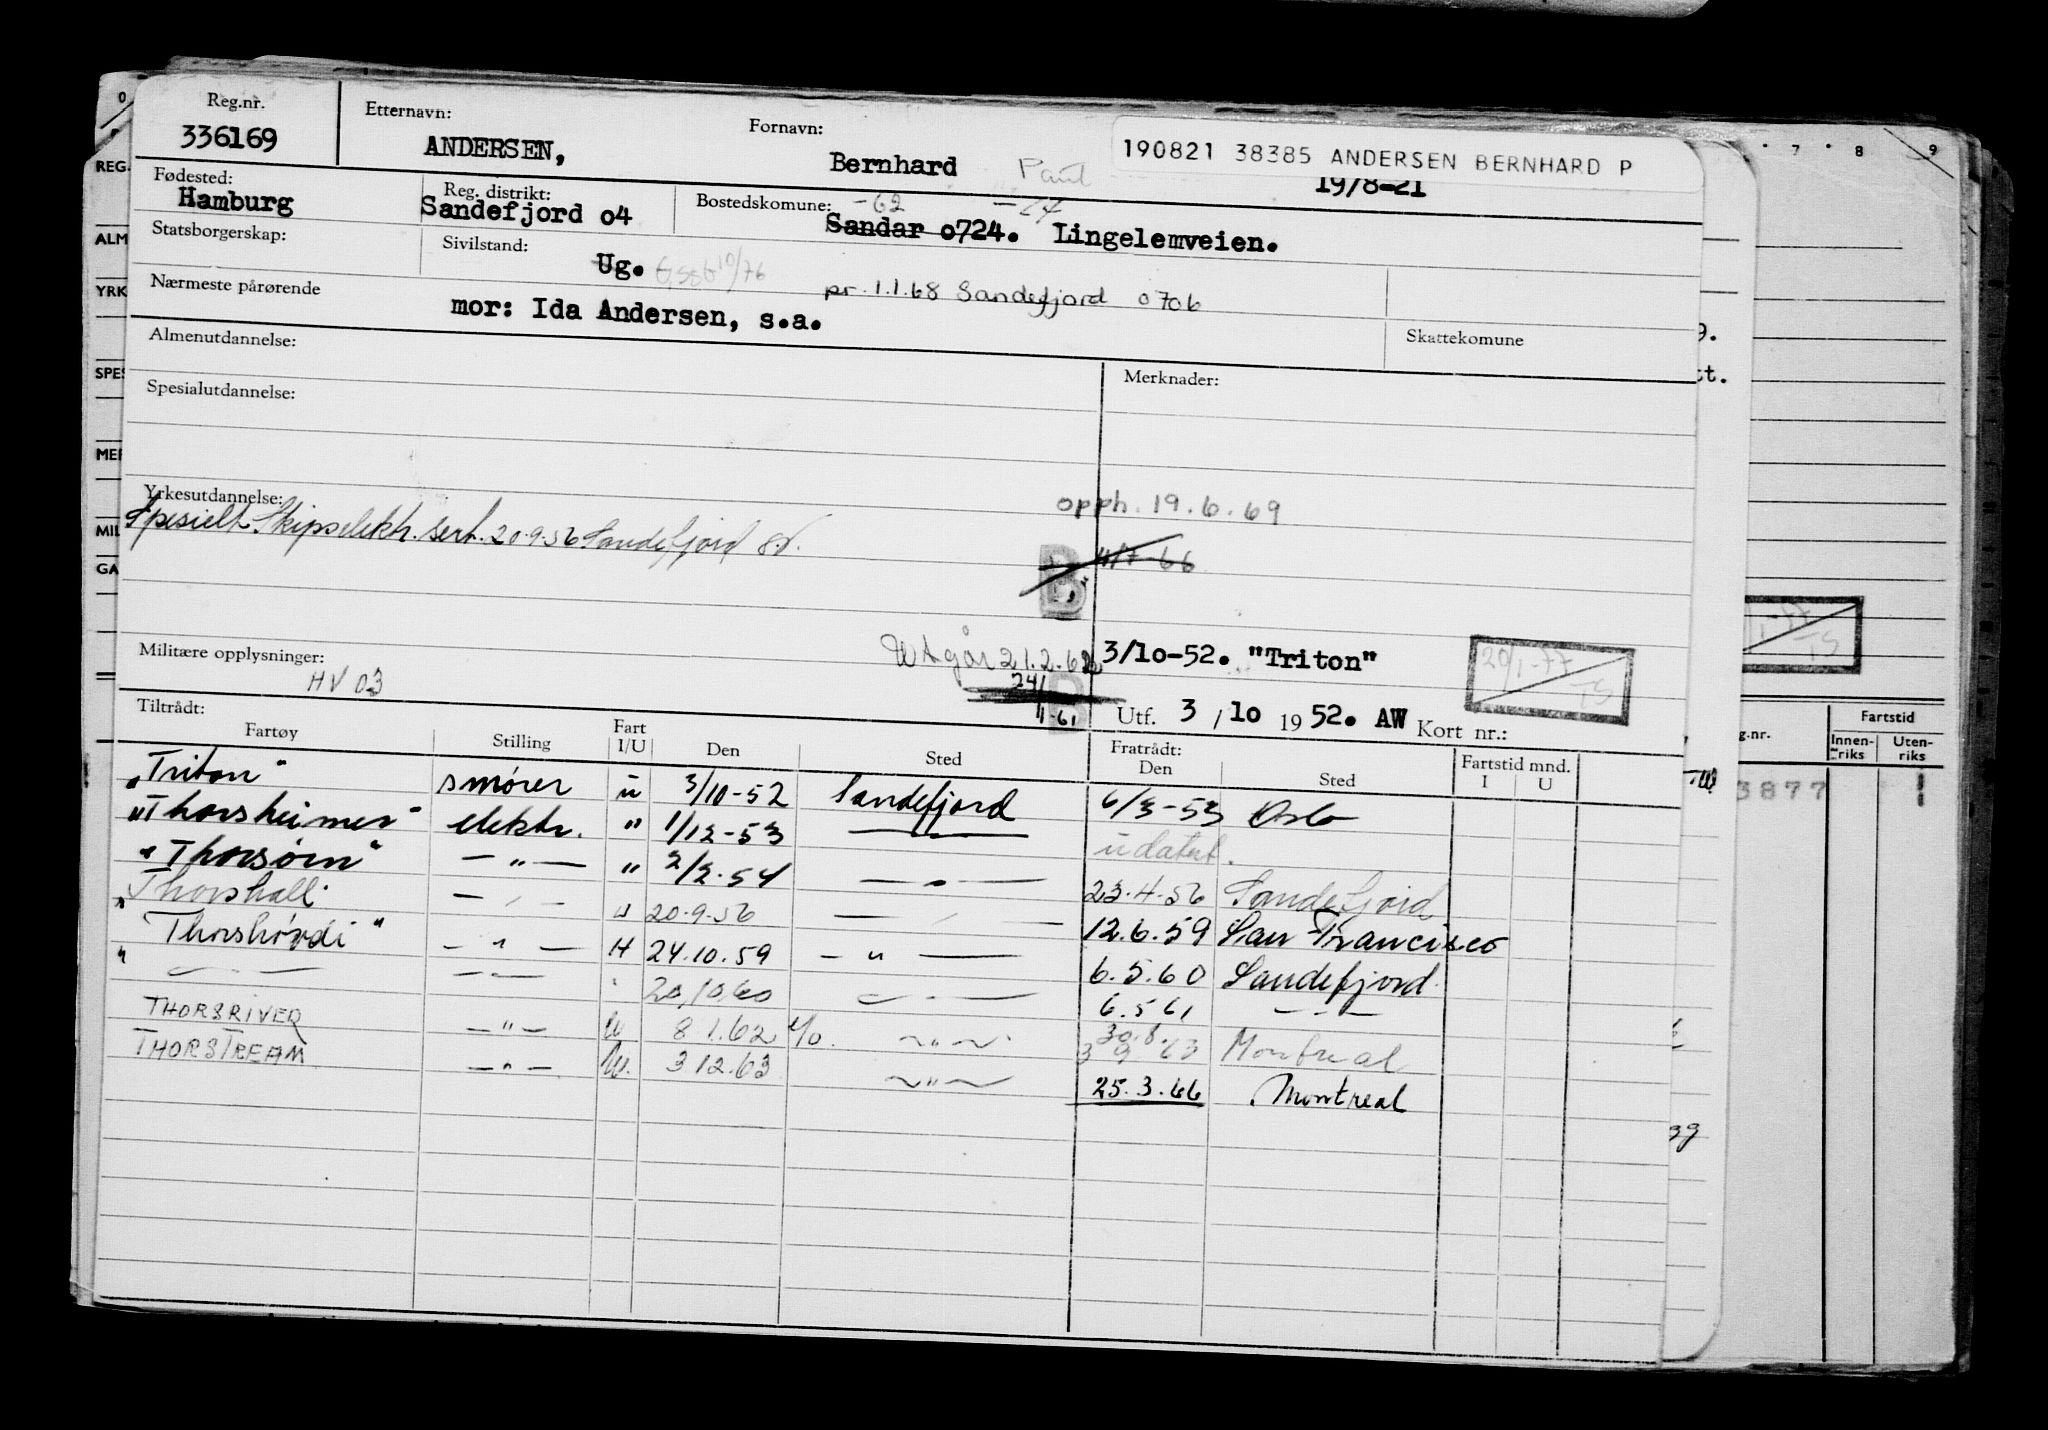 Reg.nr.
336169
Etternavn:
ANDERSEN,
Fornavn:
Bernhard Paul
190821 38385 ANDERSEN BERNHARD P
19/8-21
Fødested:
Hamburg
Reg. distrikt:
Sandefjord o4
Bostedskomune: -62
Sandar o724. Lingelemveien.
Statsborgerskap:
Sivilstand:
Ug.
pr. 1.1.68 Sandefjord 0706
Nærmeste pårørende
mor: Ida Andersen, s.a.
Skattekomune
Almenutdannelse:
Merknader:
Spesialutdannelse:
Yrkesutdannelse:
Spesielt Skipselektr. sert. 20.9.56 Sandefjord
opph. 19.6.69
B 11/7-66
Militære opplysninger:
HV 03
Utgår 21.2.62
3/10-52. "Triton"
20/1-77
Utf. 3/10 1952. AW Kort nr.:
Tiltrådt:
Fartøy Stilling Fart I/U Den Sted Fratrådt: Den Sted Fartstid mnd. I U
"Triton" smører u 3/10-52 Sandefjord 6/3-53 Oslo
"Thorsheimer" elektr. " 1/12-53 — udatert.
"Thorsørn" — " — " 2/2-54 — " — 23.4.56 Sandefjord
"Thorshall" — " — u 20.9.56 — " — 12.6.59 San Francisco
"Thorshøvdi" — " — u 24.10.59 — " — 6.5.60 Sandefjord
" — " — — " — " 20.10.60 — " — 6.5.61 — " —
THORSRIVER — " — U 8 1.62 — " — 30.8. 3 9 63 Montreal
THORSTREAM — " — U. 3 12.63 — " — 25.3.66 Montreal
REG.
ALM
YRK
SPES
MER
MIL
GA
7 8 9
tt.
g.nr.
Fartstid
Innen-riks
Uten-riks
3877